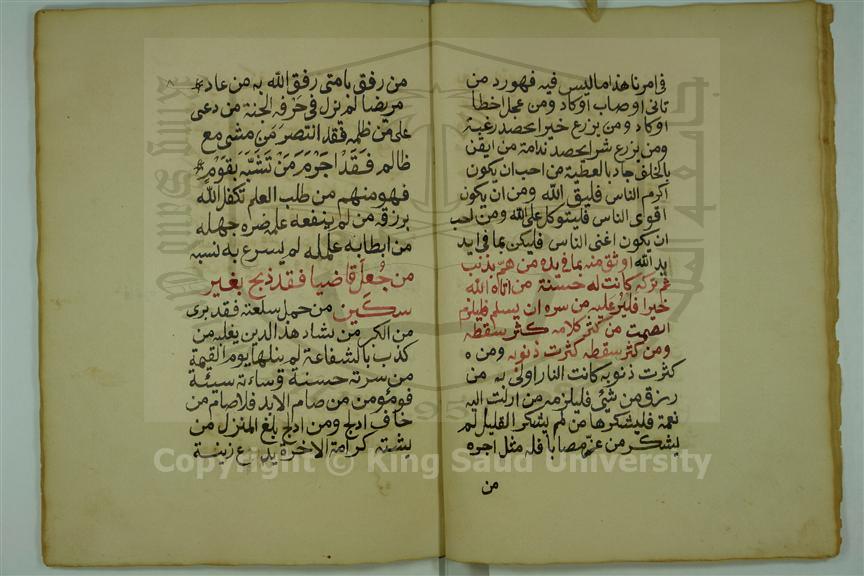 في امرنا هذا ما ليس فيه فهو رد من
تاني اصاب او كاد ومن عجل اخطا
او كاد ومن يزرع خيرا يحصد رغبة
ومن يزرع شرا يحصد ندامة من ايقن
بالخلف جاد بالعطية من احب ان يكون
اكرم الناس فليتق الله ومن ان يكون
اقوى الناس فليتوكل على الله ومن احب
ان يكون اغنى الناس فليكن بما في ايد
يد الله اوثق منه بما في يده من هم بذنب
ثم تركه كانت له حسنة من اتاه الله
خيرا فلير عليه من سره ان يسلم فليلزم
الصمت من كثر كلامه كثر سقطه
ومن كثر سقطه كثرت ذنوبه ومن ه
كثرت ذنوبه كانت النار اولى به من
رزق من شئ فليلزمه من ازلت اليه
نعمة فليشكرها من لم يشكر القليل لم
يشكر من عزى مصابا فله مثل اجره
من
من رفق بامتى رفق الله به من عاد
مريضا لم يزل في خرفة الجنة من دعى
على من ظلمه فقد انتصر من مشى مع
ظالم فقد اجرم من تشبه بقوم
فهو منهم من طلب العلم تكفل الله
برزقه من لم ينفعه علمه ضره جهله
من ابطا به عمله لم يسرع به نسبه
من جعل قاضيا فقد ذبح بغير
سكين من حمل سلعته فقد برى
من الكبر من يشاد هذ الدين يغلبه من
كذب بالشفاعة لم ينلها يوم القيمة
من سرته حسنة وساءته سيئة
فهو مؤمن من صام الابد فلا صام من
خاف ادلج ومن ادلج بلغ المنزل من
يشته كرامة الاخرة يدع زينة
Copyright © King Saud University